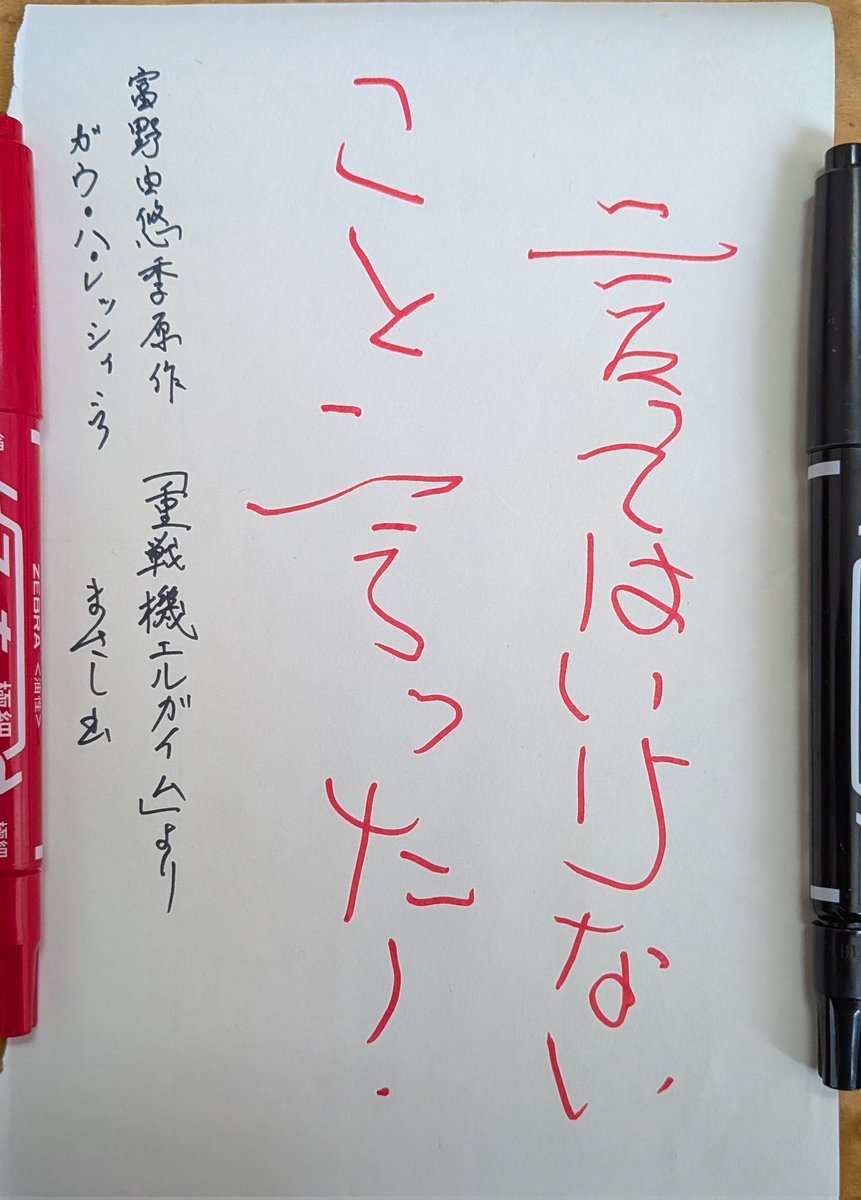 言ってはいけない
こと言った!
富野由悠季原作 「重戦機エルガイム」より
ガウ・ハ・レッシィ言う まさし書
ZEBRA <油性>
極細
極細